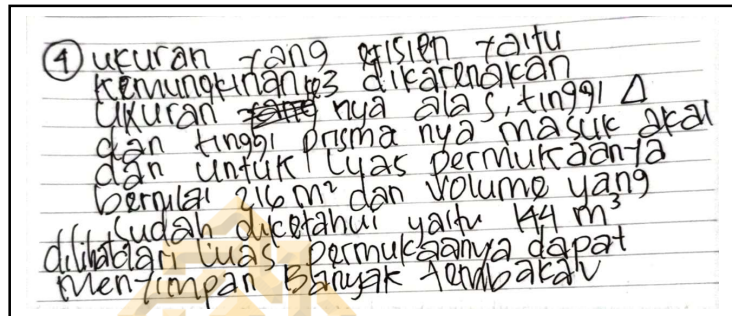 ④ ukuran yang efisien yaitu
kemungkinan ke3 dikarenakan
ukuran nya alas, tinggi Δ
dan tinggi prisma nya masuk akal
dan untuk luas permukaannya
bernilai 216 m² dan volume yang
sudah diketahui yaitu 144 m³
dilihat dari luas permukaanya dapat
menyimpan Banyak tembakau